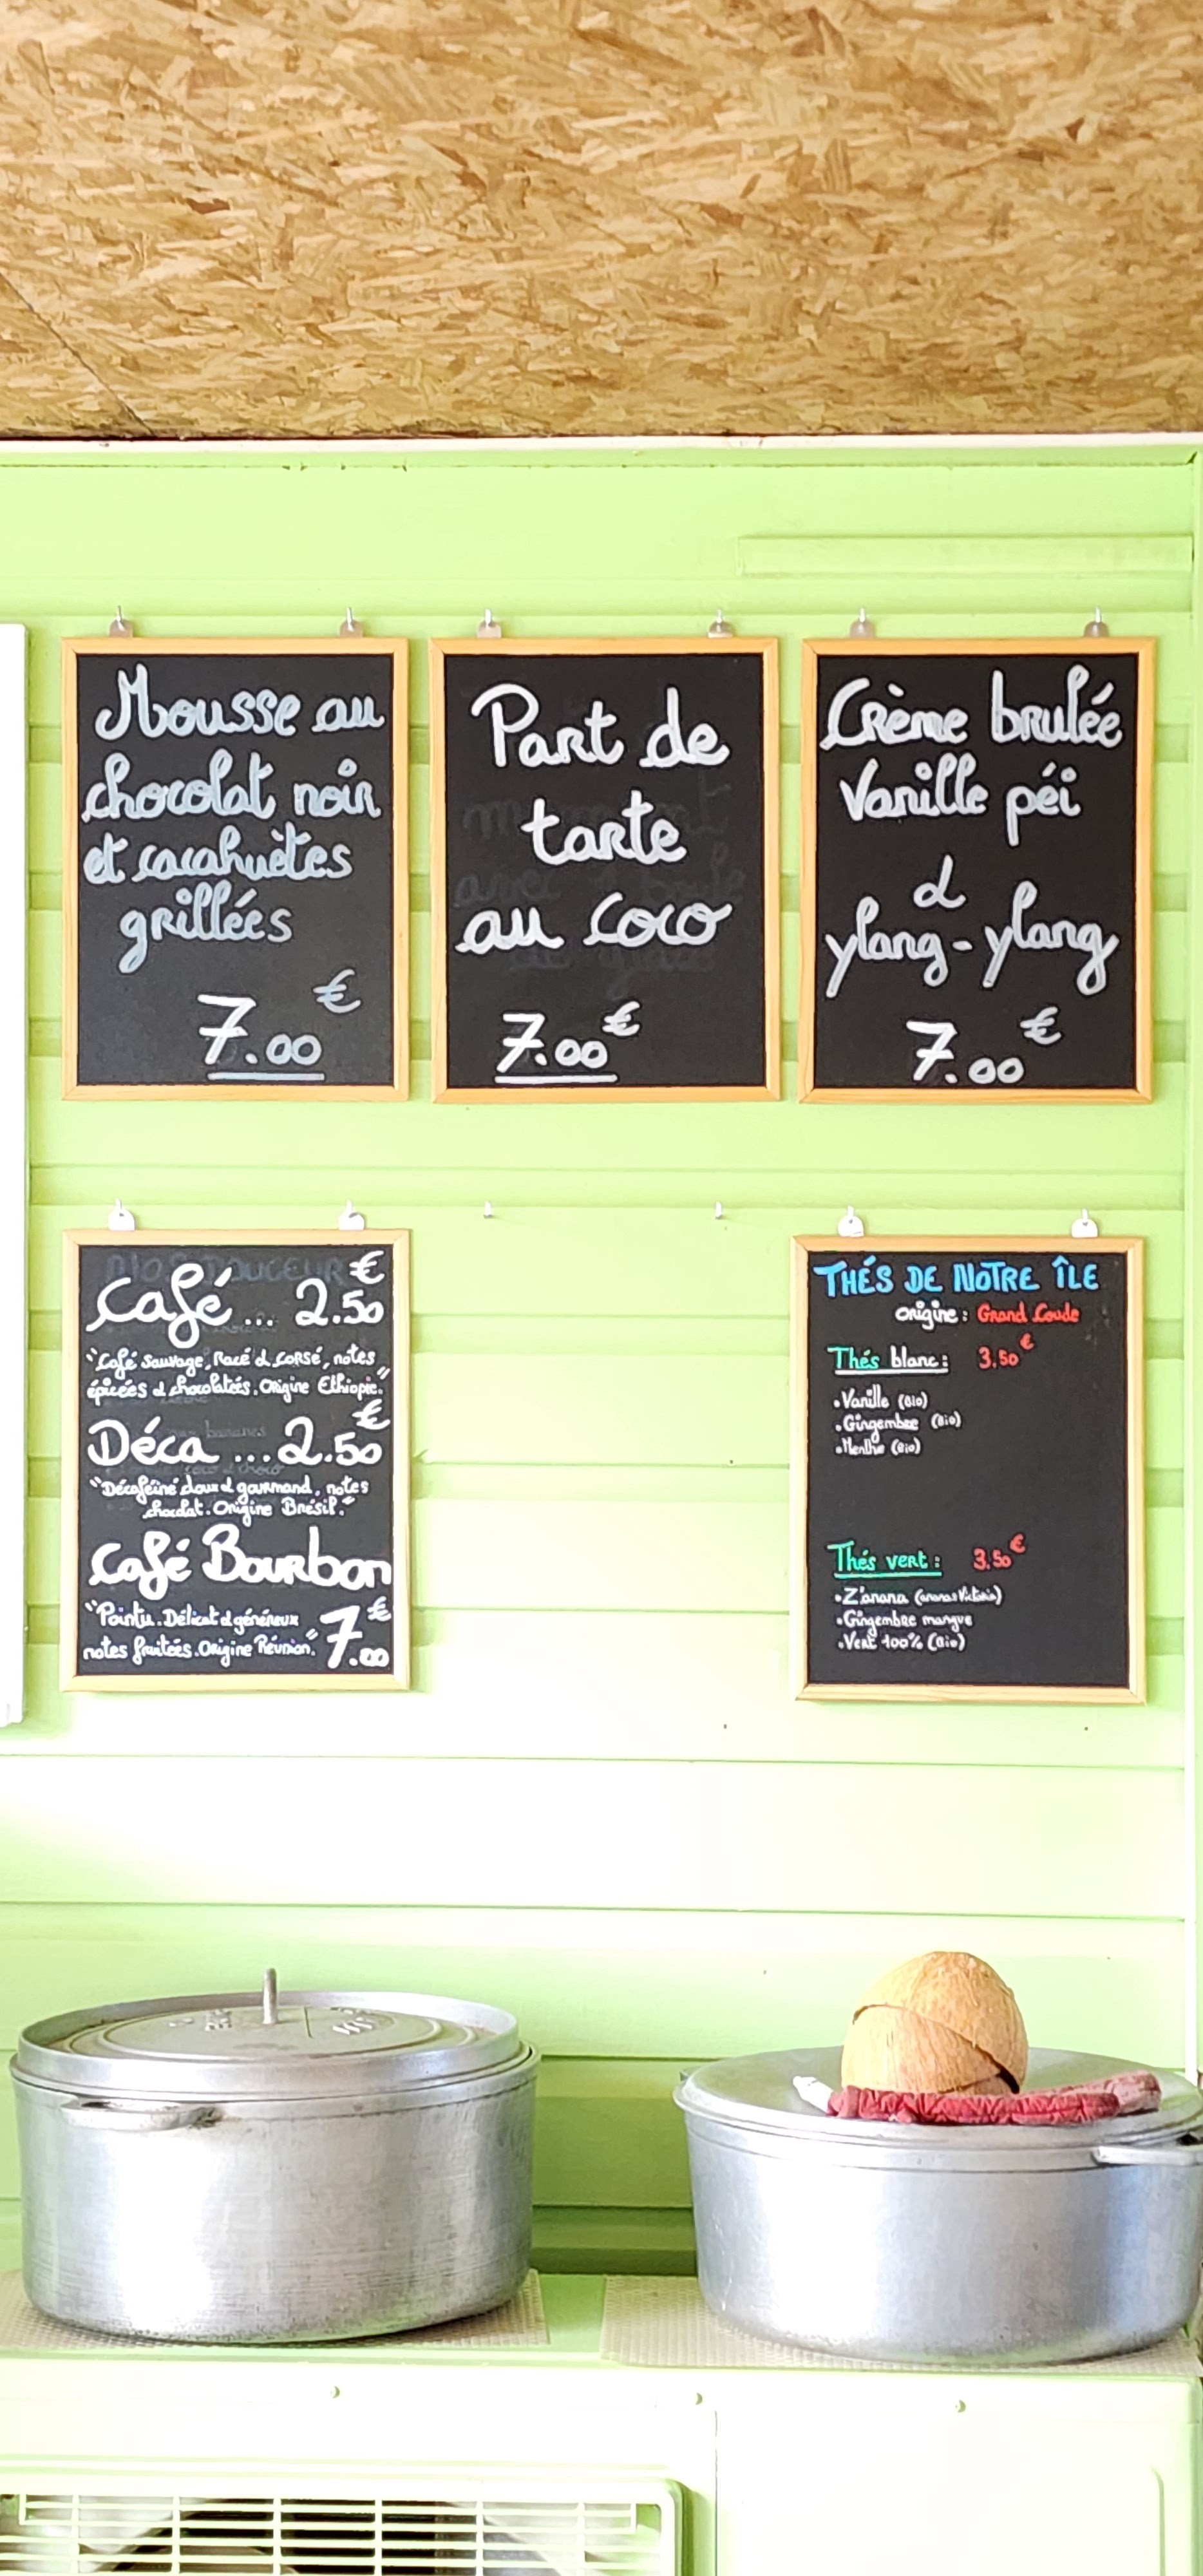 Mousse au
chocolat noir
et cacahuètes
grillées
7.00 €
Part de
tarte
au coco
7.00 €
Crème brulée
Vanille péi
et
ylang-ylang
7.00 €
Café ... 2.50 €
"Café sauvage, Racé et corsé, notes
épicées et chocolatées. Origine Ethiopie."
Déca ... 2.50 €
"Décaféiné doux et gourmand, notes
chocolat. Origine Brésil."
Café Bourbon
"Pointu. Délicat et généreux
notes fruitées. Origine Réunion." 7.00 €
THÉS DE NOTRE ÎLE
origine : Grand Coude
Thés blanc : 3.50 €
• Vanille (Bio)
• Gingembre (Bio)
• Menthe (Bio)
Thés vert : 3.50 €
• Z'anana (ananas Victoria)
• Gingembre mangue
• Vert 100% (Bio)